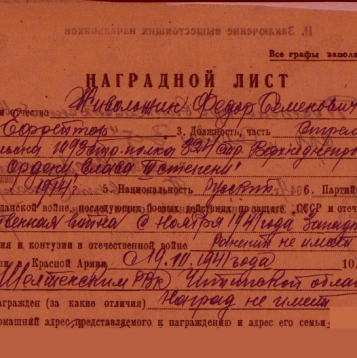 II. Заключение вышестоящих начальников
Все графы запол
НАГРАДНОЙ ЛИСТ
и отчество Живолошин Федор Семенович
Ефрейтор 3. Должность, часть Стрел
1093 стр. полка 324 стр. Верхнеднепр
Ордену „Слава III степени"
1914г 5. Национальность Русский 6. Партий
данской войне, последующих боевых действиях по защите СССР и отече
твенная война с Ноября 1941 года Запад
ия и контузии в отечественной войне Ранений не имеет
и в Красной Армии с 19.III.1941 года 10.
РВК Читинской облас
агражден (за какие отличия) Наград не имеет
омашний адрес представляемого к награждению и адрес его семьи